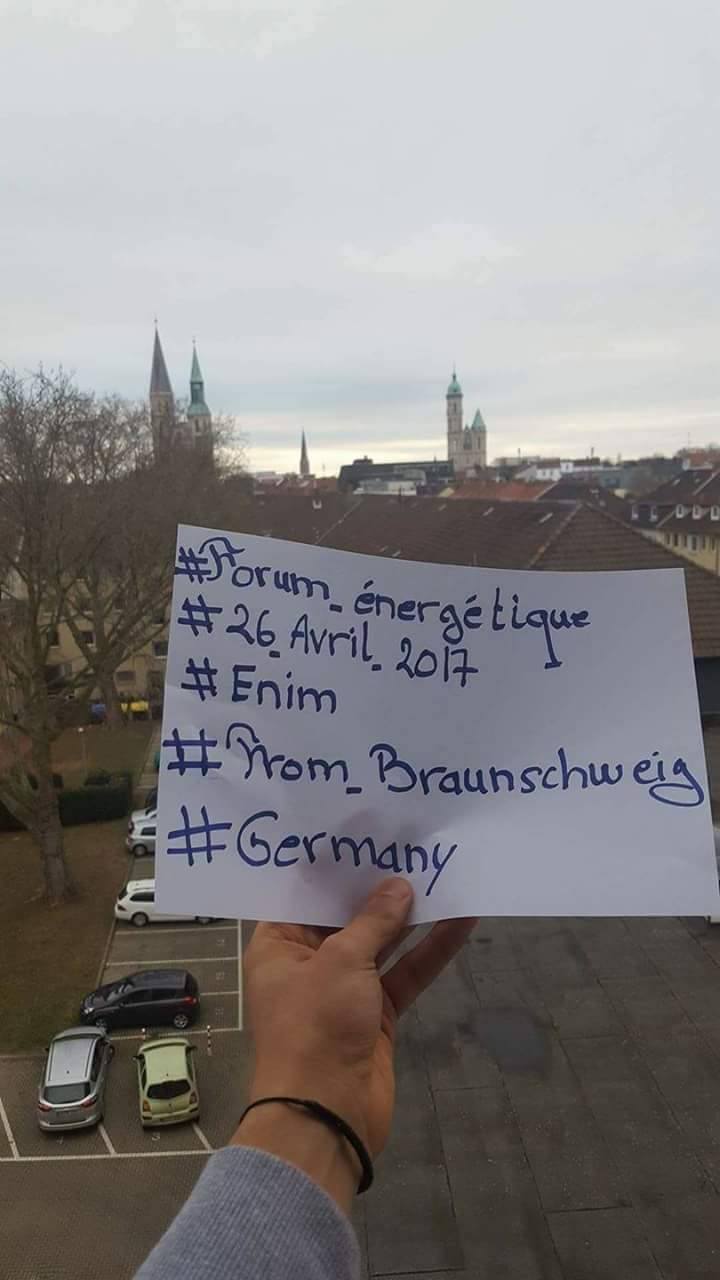 #Forum_énergétique
#26_Avril_2017
#Enim
#From_Braunschweig
#Germany